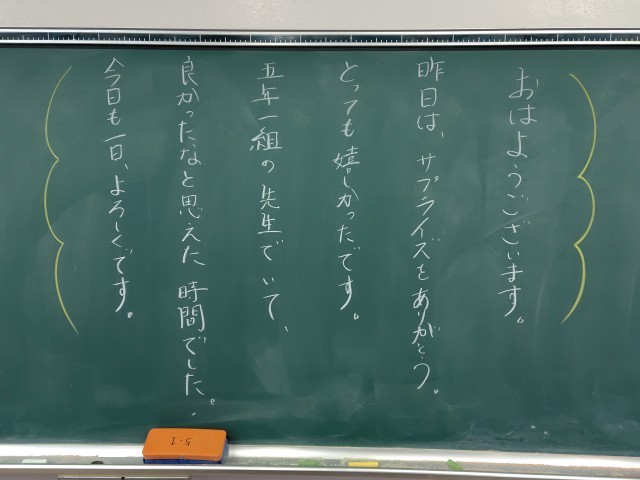 おはようございます。
昨日は、サプライズをありがとう。
とっても嬉しかったです。
五年一組の先生でいて、
良かったなと思えた時間でした。
今日も一日、よろしくです。
5-1